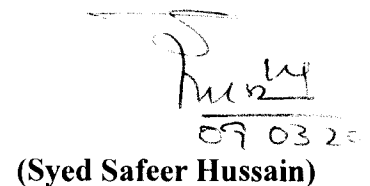 09 03 20
(Syed Safeer Hussain)